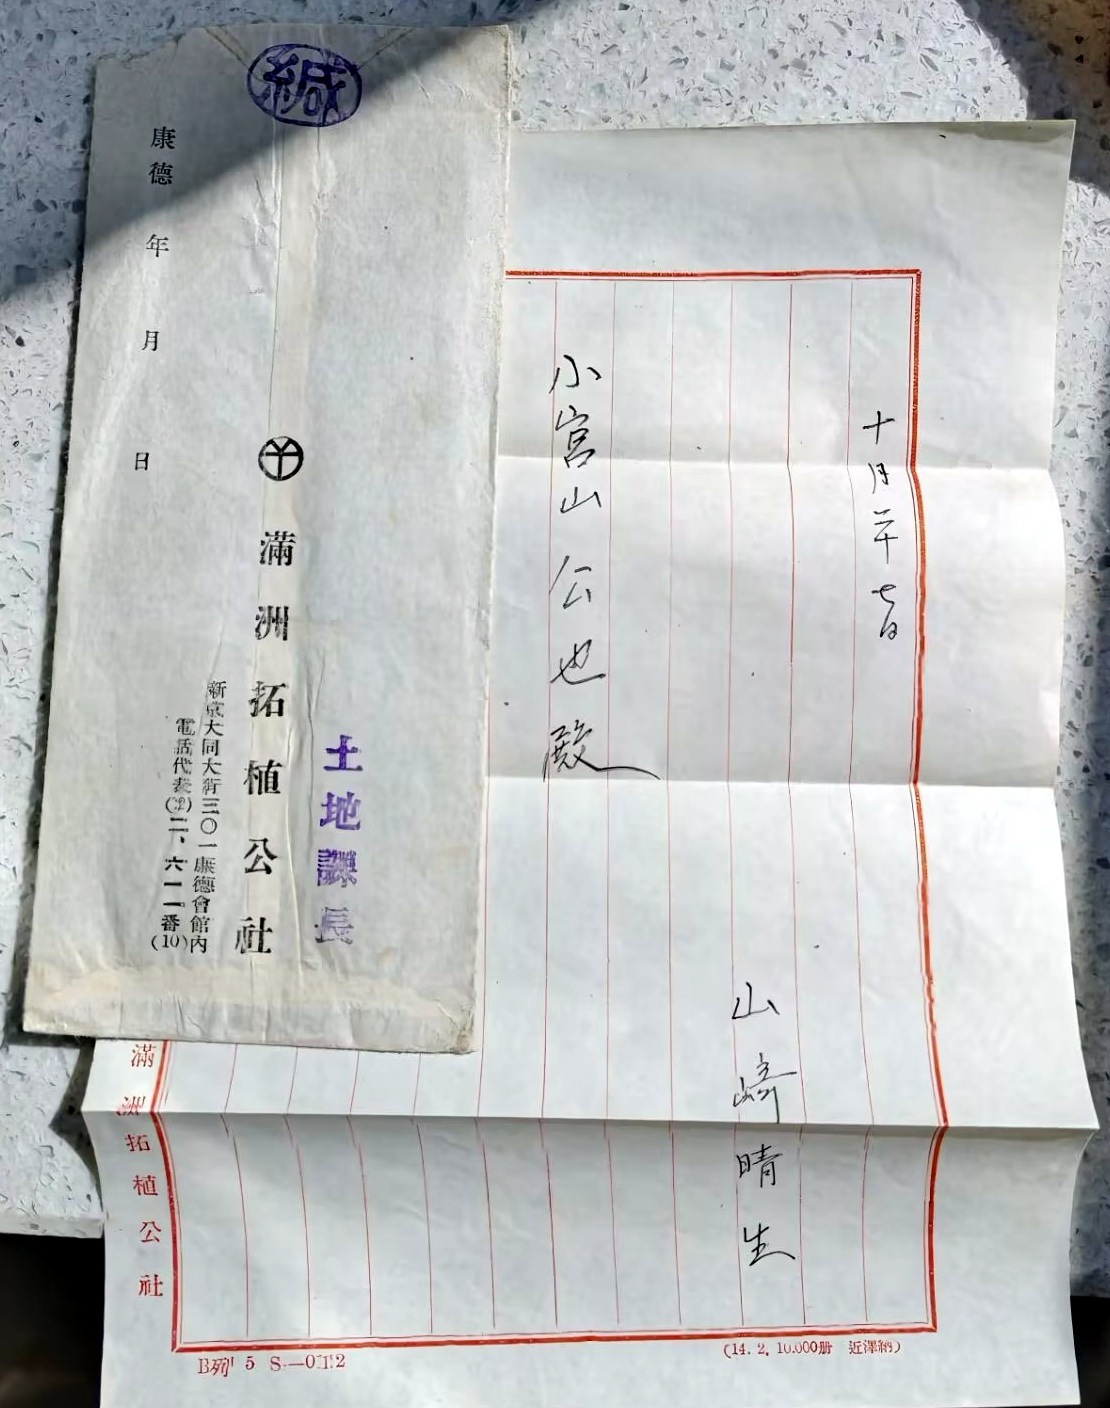 緘
土地課長
滿洲拓植公社
新京大同大街三〇一康德會館内
電話代表(2)二、六一一番(10)
康德 年 月 日
十月二十七日
山崎晴生
小宮山公也殿
滿洲拓植公社
B列 5 S—012
(14. 2. 10.000册 近澤納)